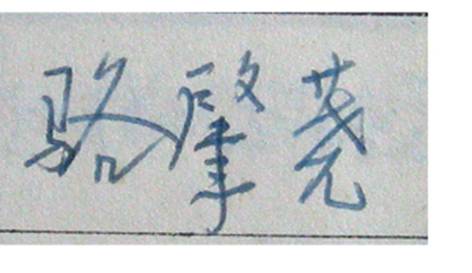 骆肇荛